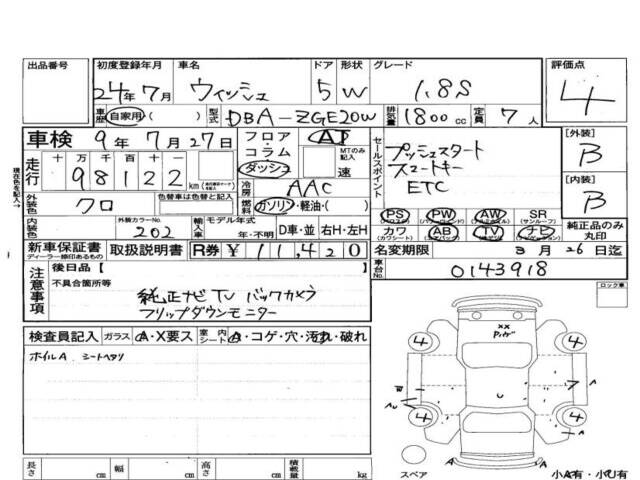 出品番号 初度登録年月 車名 ドア 形状 グレード 評価点
24年7月 ウィッシュ 5 W 1.8S 4
車歴 自家用 ( ) 型式 DBA-ZGE20W 排気量 1800cc 定員 7人
車検 9年7月27日 フロア・コラム・ダッシュ AT MTのみ記入 速
セールスポイント プッシュスタート
スマートキー
ETC
[外装] B
[内装] B
現在色を記入→
走行 十万千百十一
98122 km
冷房 AAC
外装色 クロ 色替車は色替と記入 燃料 ガソリン・軽油・( )
内装色 外装カラーNo. 202 輸入車 モデル年式 年・不明 D車・並 右H・左H
PS PW AW SR (サンルーフ)
カワ (カワシート) AB TV ナビ 純正品のみ丸印
新車保証書 ディーラー捺印あるもの 取扱説明書 R券 ¥11,420 名変期限 3月26日迄
車台No. 0143918
注意事項 後日品【 】
不具合箇所等
純正ナビ TV バックカメラ
フリップダウンモニター
ロック車
検査員記入 ガラス A・X要ス 室内シート A・コゲ・穴・汚れ・破れ
ホイルA シートヘタリ
XX
4 4
4 4
A
7
A
A A
長さ cm 幅 cm 高さ cm 積載量 kg
スペア 小A有・小U有